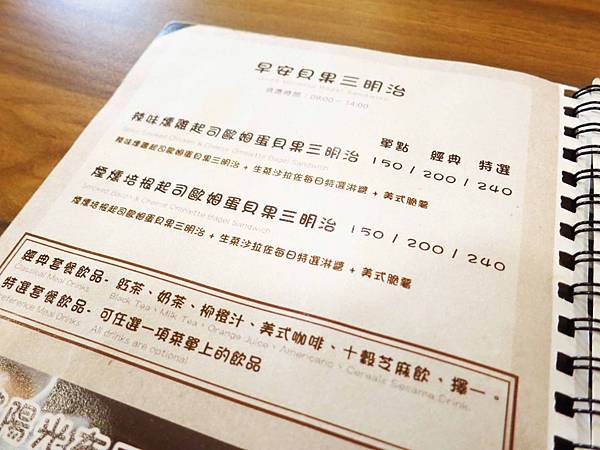 早安貝果三明治
Good Morning Bagel Sandwich
供應時間：09:00 - 14:00
單點 經典 特選
辣味燻雞起司歐姆蛋貝果三明治 150 / 200 / 240
Smoked Chicken & Cheese Omelette Bagel Sandwich
辣味燻雞起司歐姆蛋貝果三明治 + 生菜沙拉佐每日特選淋醬 + 美式脆薯
煙燻培根起司歐姆蛋貝果三明治 150 / 200 / 240
Smoked Bacon & Cheese Omelette Bagel Sandwich
煙燻培根起司歐姆蛋貝果三明治 + 生菜沙拉佐每日特選淋醬 + 美式脆薯
經典套餐飲品- 紅茶、奶茶、柳橙汁、美式咖啡、十穀芝麻飲、擇一。
Classical Meal Drinks Black Tea、Milk Tea、Orange Juice、Americano、Cereals Sesame Drink.
特選套餐飲品- 可任選一項菜單上的飲品
Preference Meal Drinks All drinks are optional.
陽光